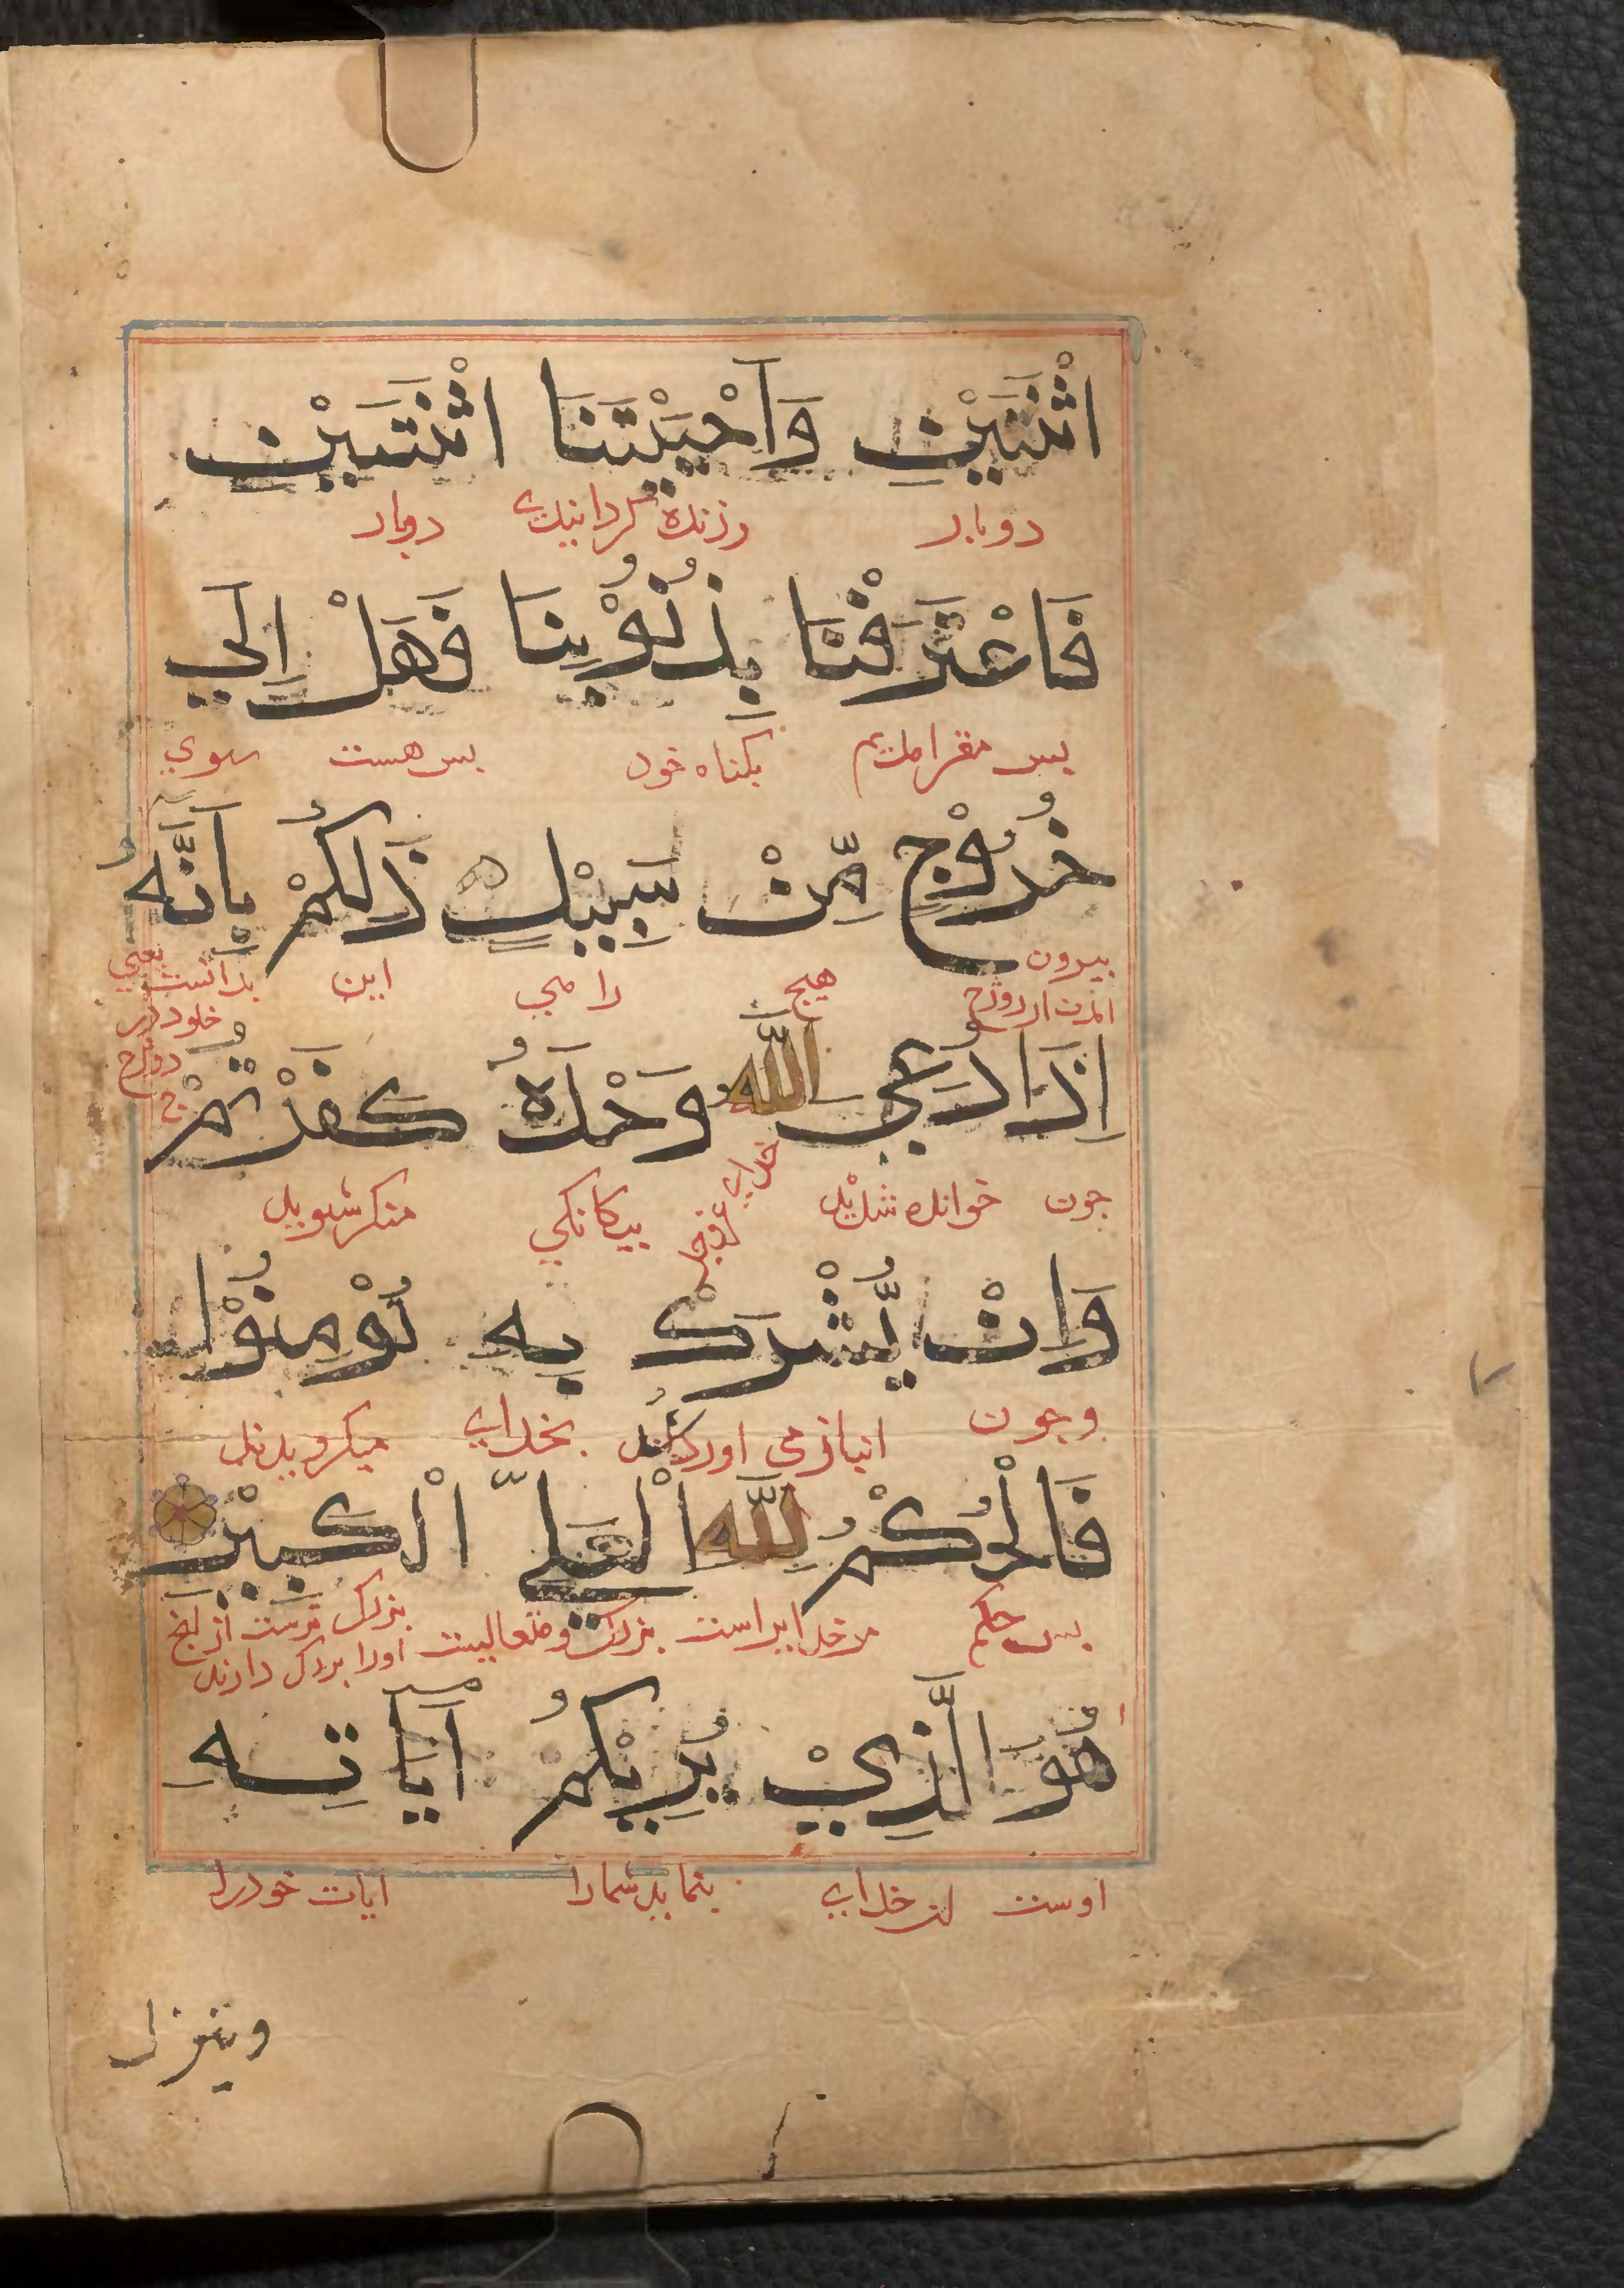 اثْنَتَيْنِ وَاَحْيَيْتَنَا اثْنَتَيْنِ
دوبار وزنده کردانیدی دوبار
فَاعْتَرَفْنَا بِذُنُوْبِنَا فَهَلْ اِلَي
بس مقر امدیم بکناه خود بس هست سوي
خُرُوْجٍ مِّنْ سَبِيْلٍ ذَلِكُمْ بِاَنَّهُ
بیرون هیچ راهي این بدانست یعني
امدن از دوزخ خلود در
دوزخ
اِذَا دُعِيَ اللّٰهُ وَحْدَهُ كَفَرْتُمْ
جون خوانده شدید خدای بیکانکي منکر شوید
وَاِنْ يُّشْرَكْ بِهِ تُؤْمِنُوْا
وجون انباز می اوردند بخدای میکرویدند
فَالْحُكْمُ لِلّٰهِ الْعَلِيِّ الْكَبِيْرِ
بس حکم مر خدایراست بزرک ومتعالیست بزرک ترست از انج
اورا بزرک دارند
هُوَ الَّذِيْ يُرِيْكُمْ آيَاتِهِ
اوست ان خدای بنماید شمارا ایات خودرا
وينزل